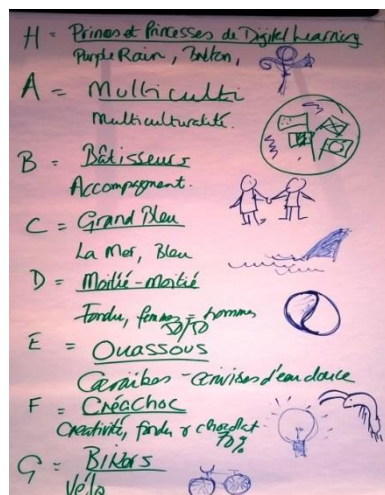 H = Princes et Princesses de Digital Learning
Purple Rain, Breton,
A = Multiculti
Multiculturalité.
B = Bâtisseurs
Accompagnent.
C = Grand Bleu
La Mer, Bleu
D = Moitié-moitié
Fondu, femmes = hommes
50/50
E = Ouassous
Caraïbes - écrevisses d'eau douce
F = Créachoc
Créativité, fondu & chocolat
70%
G = BIKers
Vélo